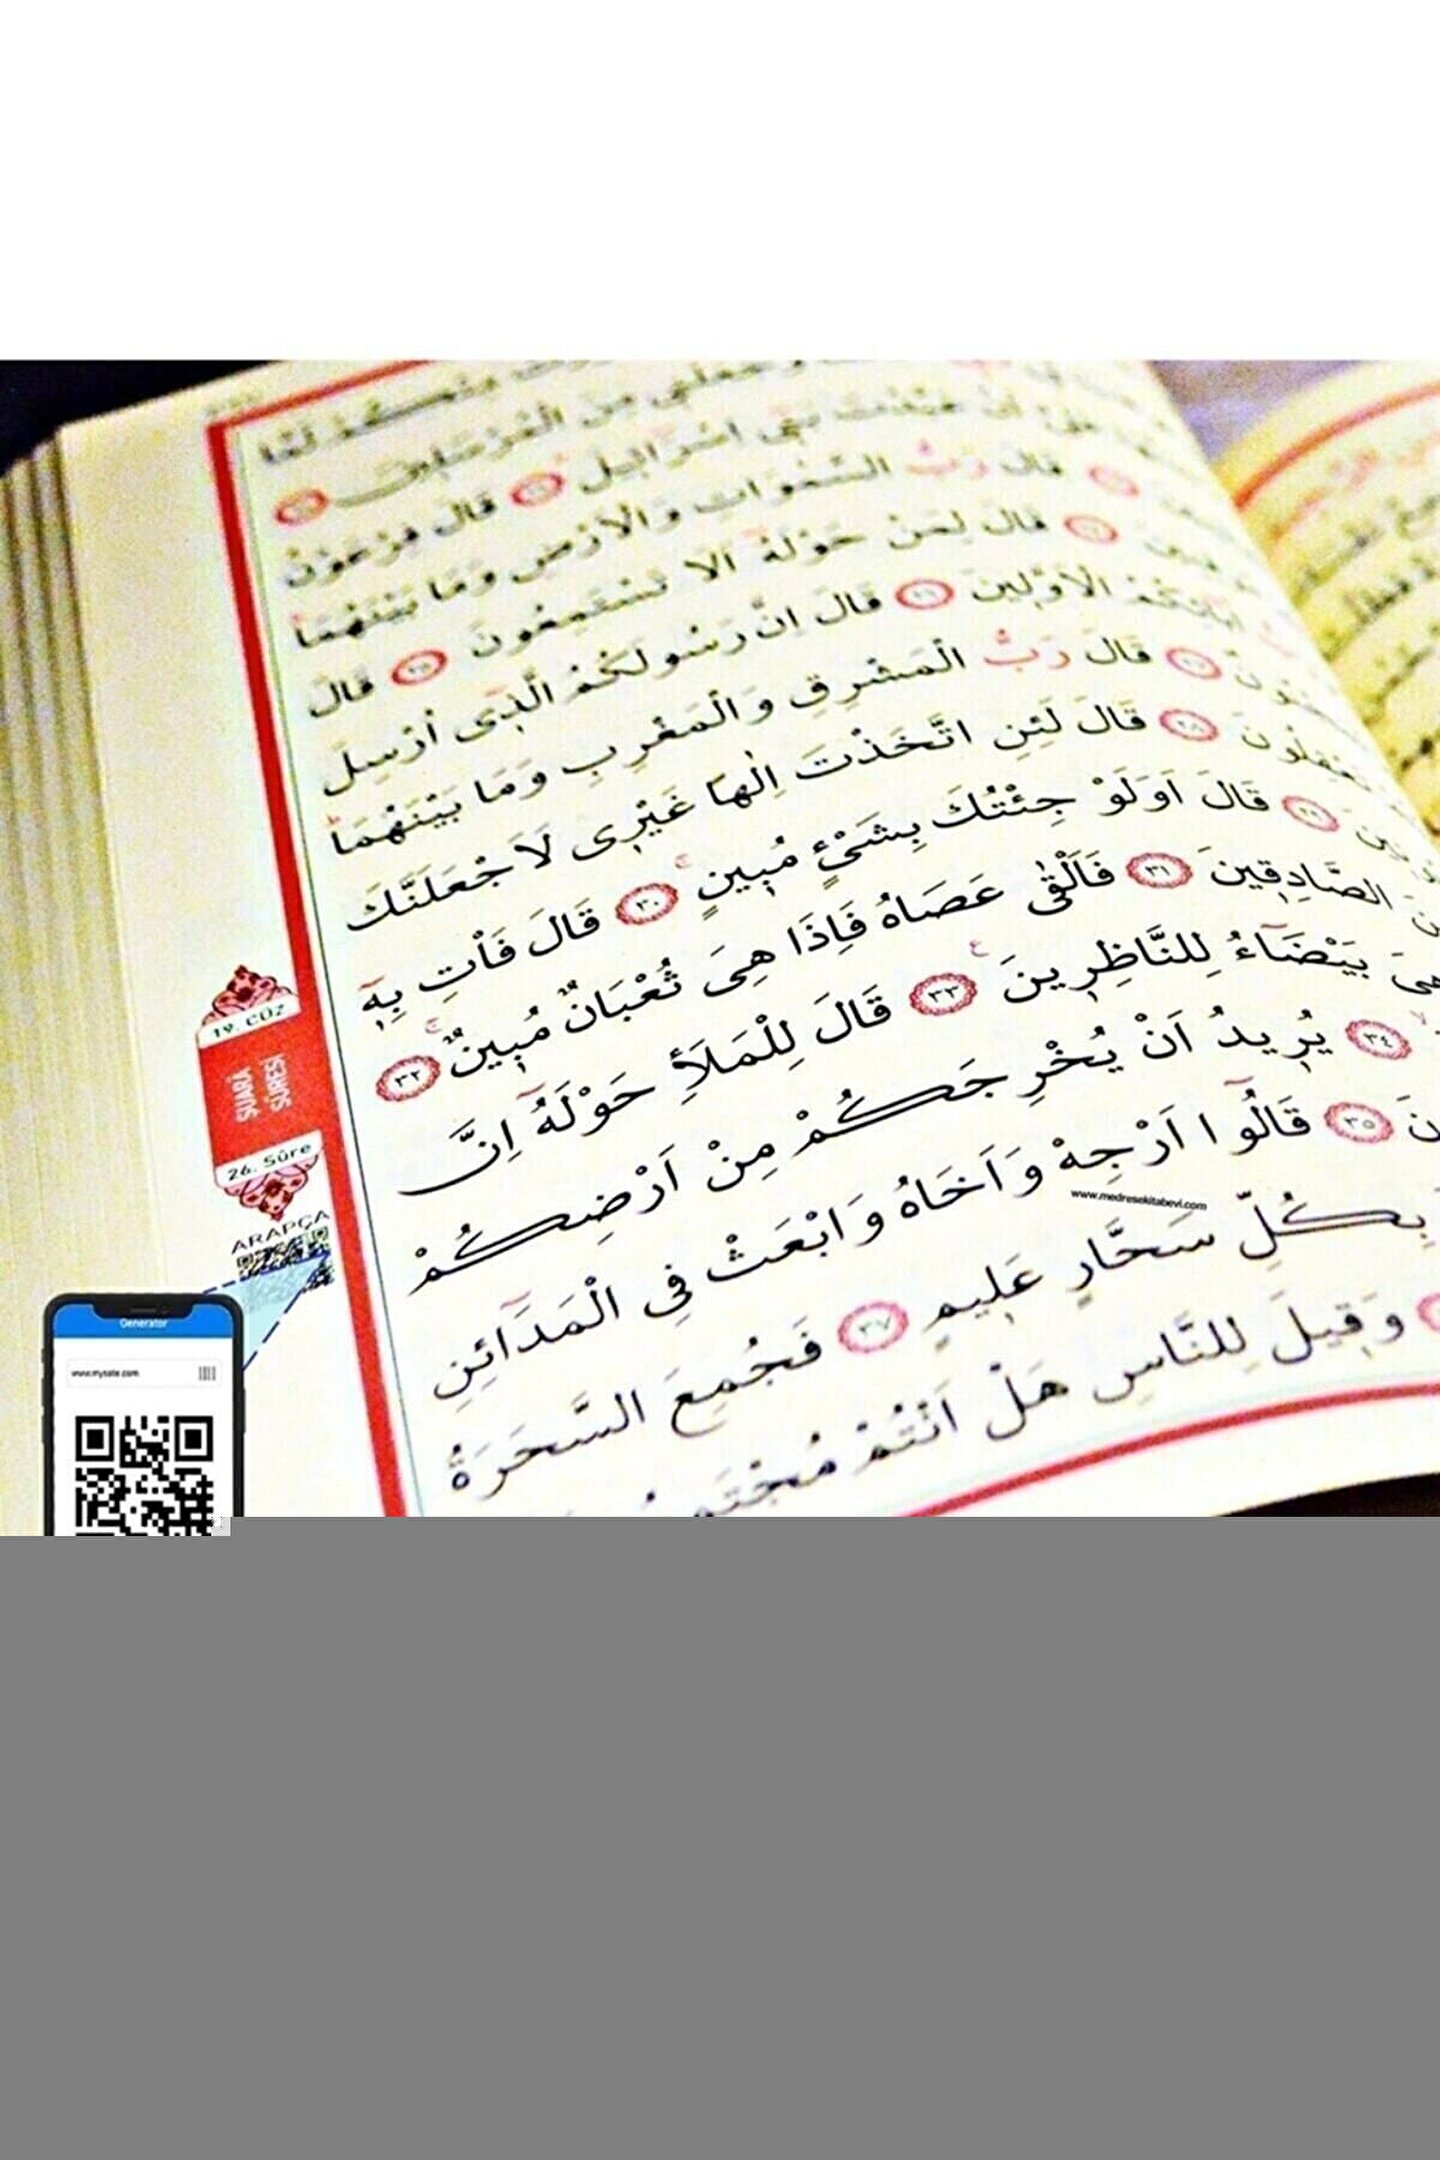 وَجَعَلَنِي مِنَ الْمُرْسَلِينَ
بَنِي اِسْرَائِيلَ ٢٢ قَالَ فِرْعَوْنُ
قَالَ رَبُّ السَّمٰوَاتِ وَالْاَرْضِ وَمَا بَيْنَهُمَا
قَالَ لِمَنْ حَوْلَهُٓ اَلَا تَسْتَمِعُونَ ٢٥ قَالَ
اٰبَٓائِكُمُ الْاَوَّلِينَ ٢٦ قَالَ اِنَّ رَسُولَكُمُ الَّذِٓي اُرْسِلَ
٢٧ قَالَ رَبُّ الْمَشْرِقِ وَالْمَغْرِبِ وَمَا بَيْنَهُمَا
تَعْقِلُونَ ٢٨ قَالَ لَئِنِ اتَّخَذْتَ اِلٰهًا غَيْرِي لَاَجْعَلَنَّكَ
٢٩ قَالَ اَوَلَوْ جِئْتُكَ بِشَيْءٍ مُبِينٍ ٣٠ قَالَ فَأْتِ بِهِٓ
الصَّادِقِينَ ٣١ فَاَلْقٰى عَصَاهُ فَاِذَا هِيَ ثُعْبَانٌ مُبِينٌ ٣٢
هِيَ بَيْضَٓاءُ لِلنَّاظِرِينَ ٣٣ قَالَ لِلْمَلَاِ حَوْلَهُٓ اِنَّ
٣٤ يُرِيدُ اَنْ يُخْرِجَكُمْ مِنْ اَرْضِكُمْ
٣٥ قَالُٓوا اَرْجِهْ وَاَخَاهُ وَابْعَثْ فِي الْمَدَٓائِنِ
بِكُلِّ سَحَّارٍ عَلِيمٍ ٣٧ فَجُمِعَ السَّحَرَةُ
وَقِيلَ لِلنَّاسِ هَلْ اَنْتُمْ
www.medresekitabevi.com
19. CÜZ
ŞUARA
SURESİ
26. Sûre
ARAPÇA
Generator
www.mysate.com